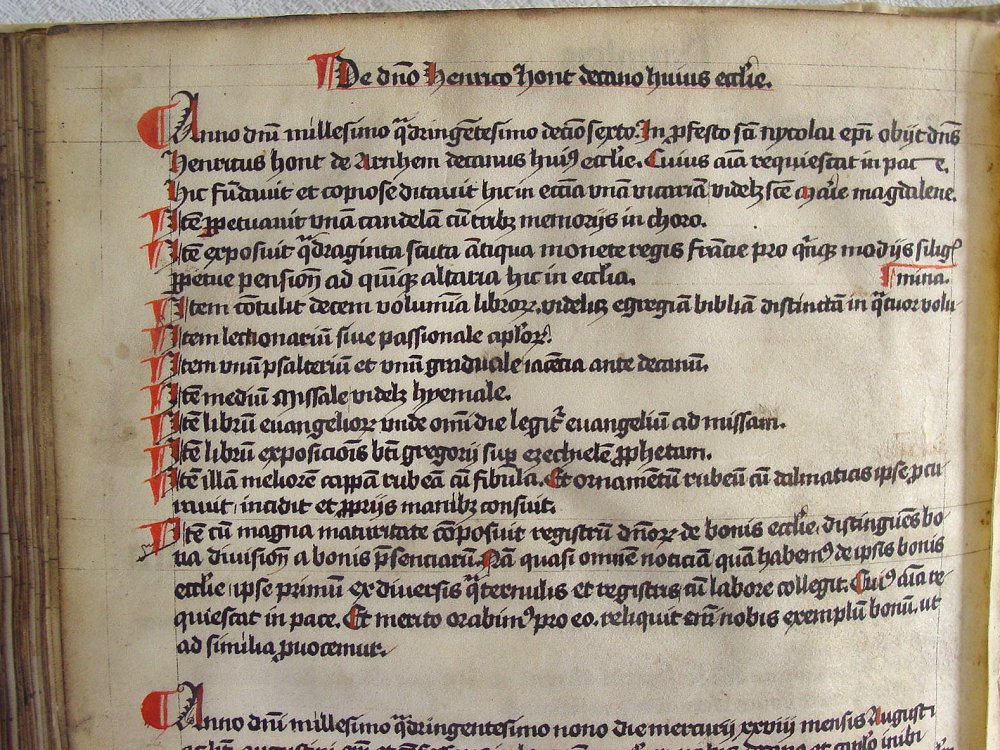 De dño Henrico hont decano huius eccl'ie.
Anno dñi millesimo q̃dringẽtesimo decĩosexto. In ꝓfesto sc̃i nycolai ep̃i obijt dñs
Henricus hont de Arnhem decanus huiꝰ eccl'ie. Cuius aĩa requiescat in pac e.
Hic fũdauit et copiose ditauit hic in eccĩa vnã vicariã videlꝫ sc̃e marie magdalene.
Itẽ ꝑpetuauit vnã candelã cũ tribꝫ memorijs in choro.
Itẽ exposuit q̃draginta scuta ãtiqua monete regis frãcie pro q̃inqꝫ modijs silig̃
ꝑpetue pensioñ ad quĩqꝫ altaria hic in ecclĩa.
Item cõtulit decem volumĩa librorꝫ. videliꝫ egregiã bibliã distinctã in q̃tuor volu
mina.
Item lectionariũ siue passionale aplorꝫ.
Item vnũ psalteriũ et vnũ graduale iacẽcia ante decanũ.
Itẽ mediũ missale videlꝫ hyemale.
Itẽ librũ euangeliorꝫ vnde omĩ die legitᷣ euangeliũ ad missam.
Itẽ librũ exposiciois̃ btĩ gregorij suꝑ ezechielẽ ꝓphetam.
Itẽ illã meliorẽ cappã rubeã cũ fibula. Et ornamẽtũ rubeũ cũ dalmaticis ipse ꝓcu
rauit incidit et ꝓprijs manibꝫ consuit.
Itẽ cũ magna maturitate cõposuit registrũ dñorꝫ de bonis eccl'ie. distinguẽs bo
na diuisioñ a bonis p̃senciarũ. Nã quasi omnẽ noticiã quã habemꝰ de ipsis bonis
eccl'ie ipse primũ ex diuersis q̃ternulis et registris cũ labore collegit. Cuiꝰ aĩa re
quiescat in pace. Et merito orabimꝰ pro eo. reliquit em̃ nobis exemplũ bonũ. ut
ad similia ꝓuocemur.
Anno dñi millesimo q̃dringentesimo nono die mercurij xxviij mensis Augusti